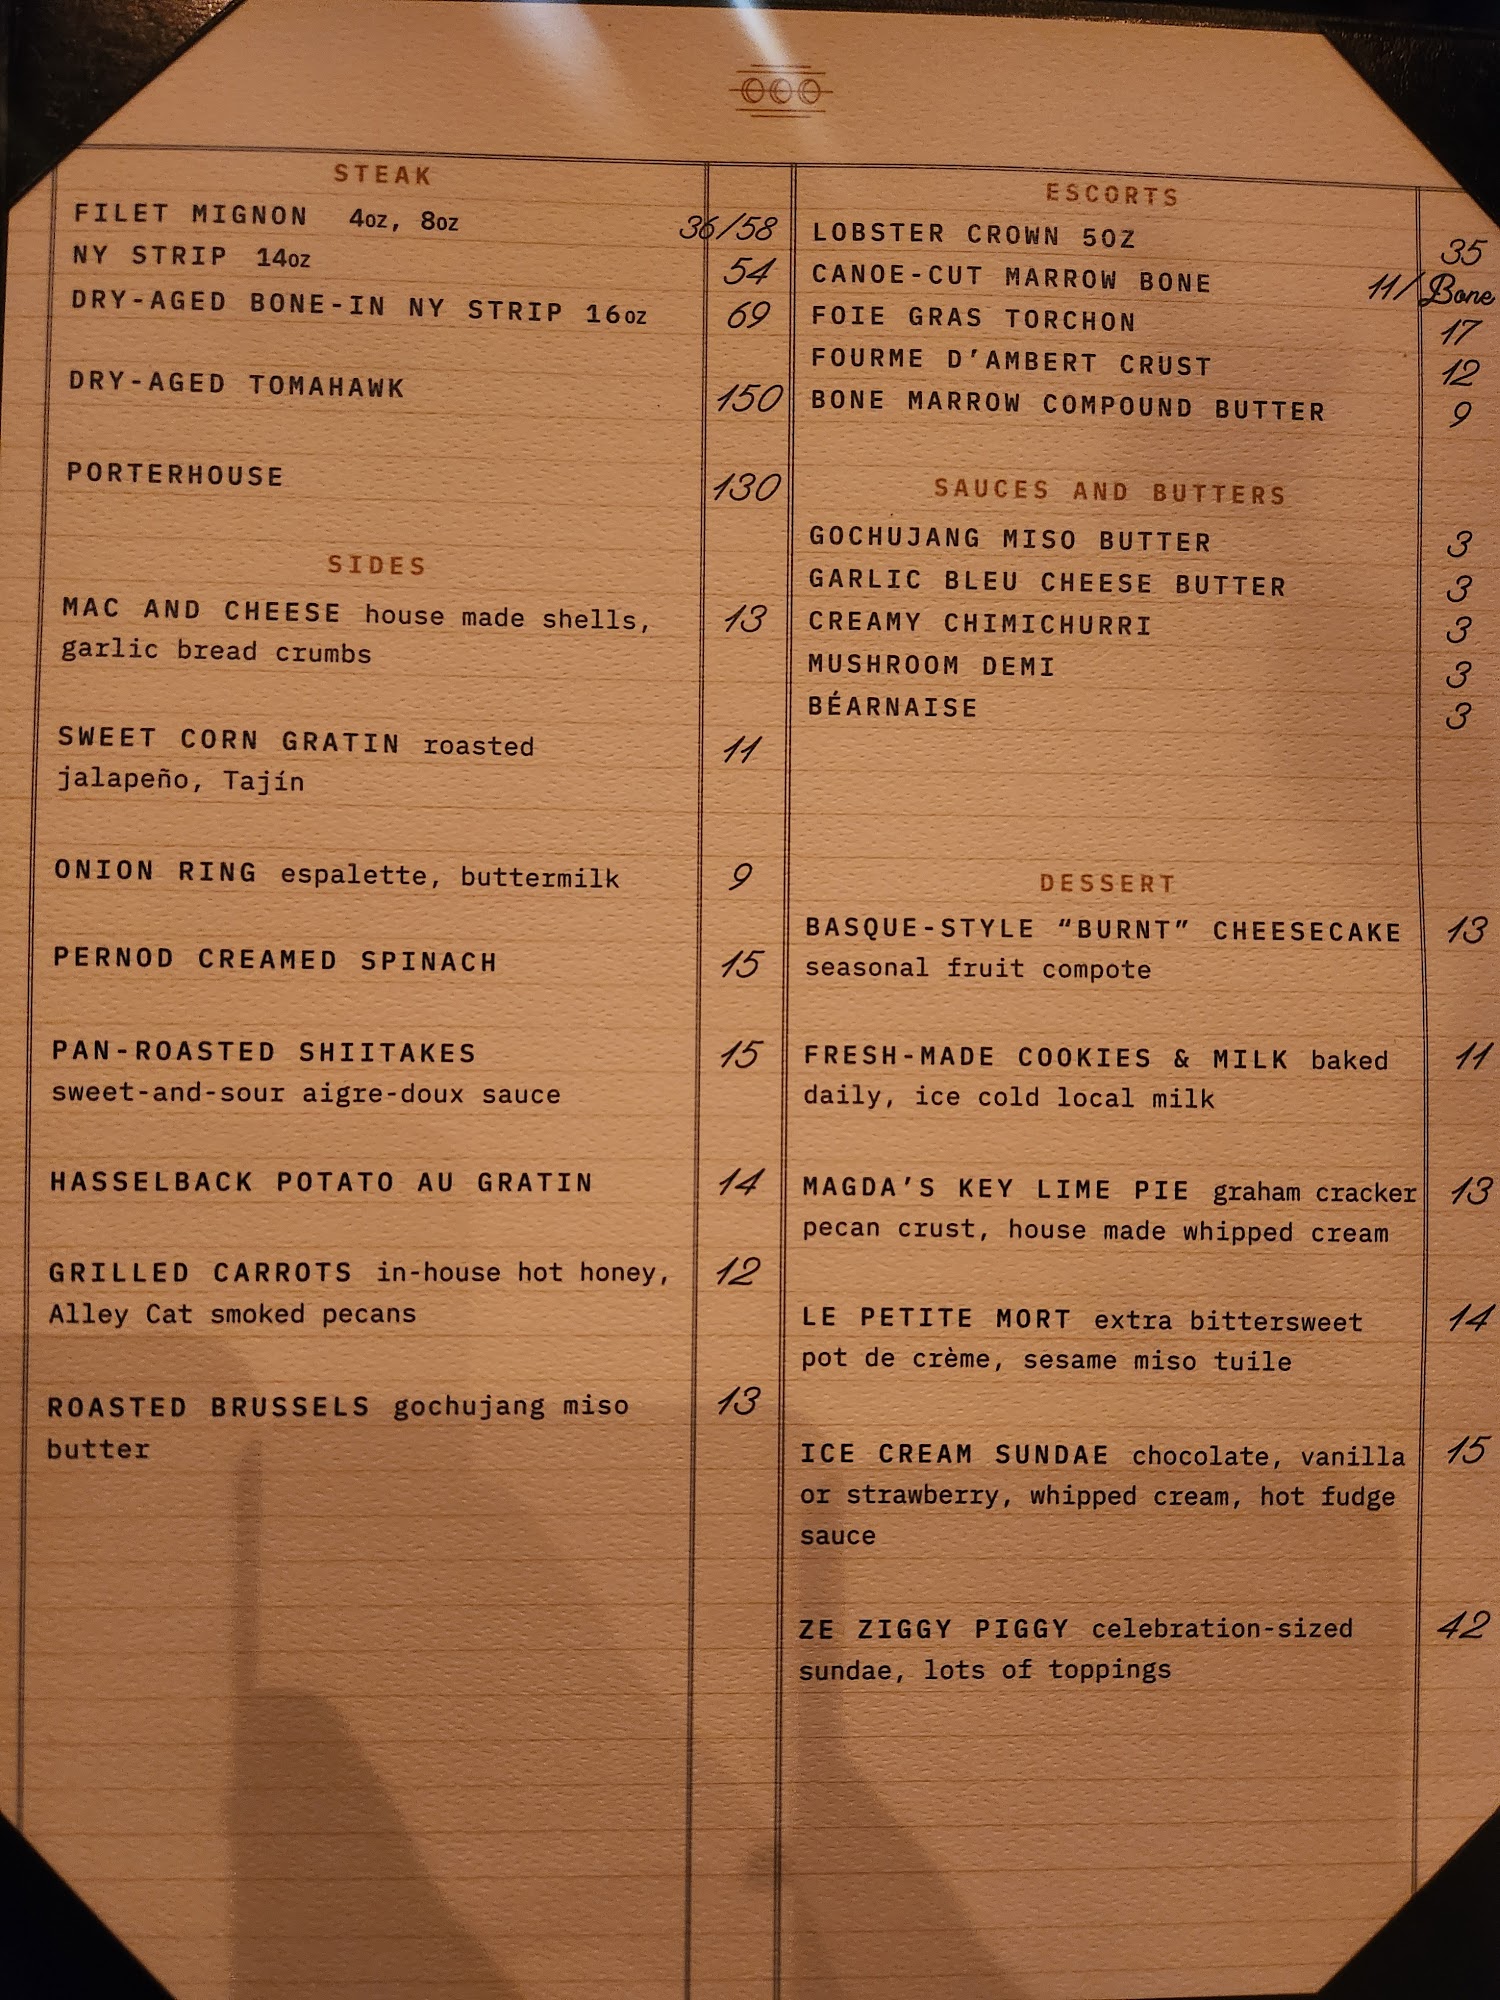 STEAK
FILET MIGNON 4oz, 8oz 36/58
NY STRIP 14oz 54
DRY-AGED BONE-IN NY STRIP 16oz 69
DRY-AGED TOMAHAWK 150
PORTERHOUSE 130
SIDES
MAC AND CHEESE house made shells, 13
garlic bread crumbs
SWEET CORN GRATIN roasted 11
jalapeño, Tajín
ONION RING espalette, buttermilk 9
PERNOD CREAMED SPINACH 15
PAN-ROASTED SHIITAKES 15
sweet-and-sour aigre-doux sauce
HASSELBACK POTATO AU GRATIN 14
GRILLED CARROTS in-house hot honey, 12
Alley Cat smoked pecans
ROASTED BRUSSELS gochujang miso 13
butter
ESCORTS
LOBSTER CROWN 5OZ 35
CANOE-CUT MARROW BONE 11/Bone
FOIE GRAS TORCHON 17
FOURME D’AMBERT CRUST 12
BONE MARROW COMPOUND BUTTER 9
SAUCES AND BUTTERS
GOCHUJANG MISO BUTTER 3
GARLIC BLEU CHEESE BUTTER 3
CREAMY CHIMICHURRI 3
MUSHROOM DEMI 3
BÉARNAISE 3
DESSERT
BASQUE-STYLE “BURNT” CHEESECAKE 13
seasonal fruit compote
FRESH-MADE COOKIES & MILK baked 11
daily, ice cold local milk
MAGDA’S KEY LIME PIE graham cracker 13
pecan crust, house made whipped cream
LE PETITE MORT extra bittersweet 14
pot de crème, sesame miso tuile
ICE CREAM SUNDAE chocolate, vanilla 15
or strawberry, whipped cream, hot fudge
sauce
ZE ZIGGY PIGGY celebration-sized 42
sundae, lots of toppings